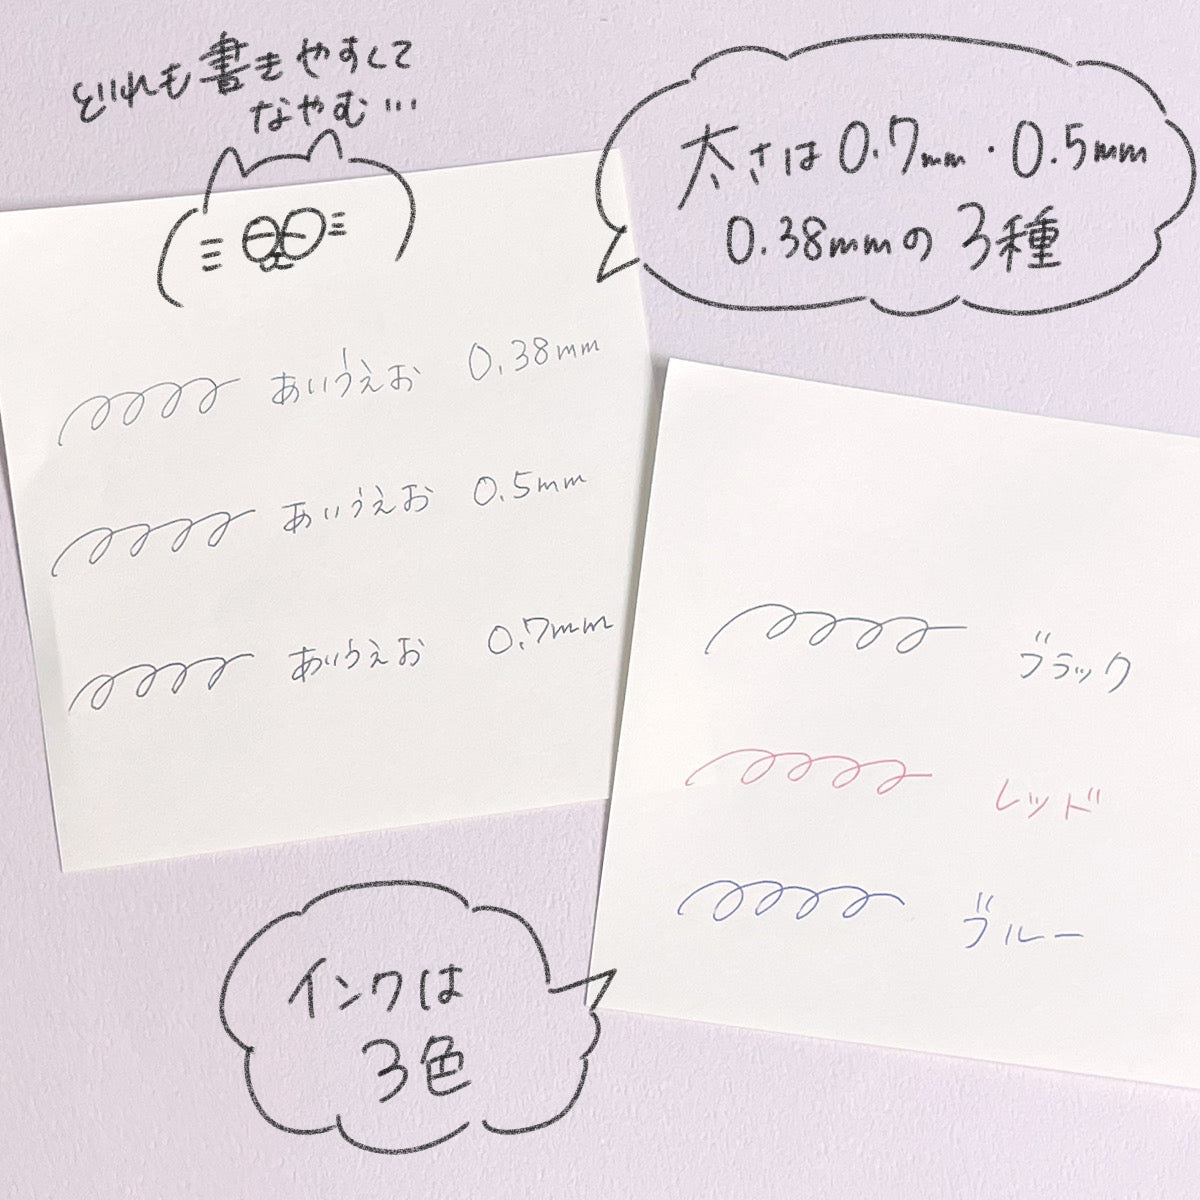 どれも書きやすくて
なやむ…
太さは0.7mm・0.5mm
0.38mmの3種
あいうえお 0.38mm
あいうえお 0.5mm
あいうえお 0.7mm
ブラック
レッド
ブルー
インクは
3色